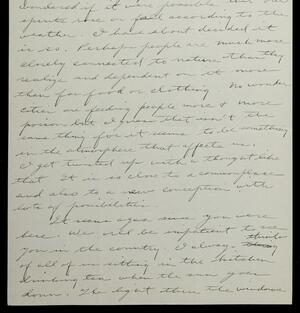 wondered if it were possible that our
spirits rose or fell according to the
weather. I have about decided it
is so. Perhaps people are much more
closely connected to nature than they
realize and dependent on it more
than for food or clothing. No wonder
cities are feeding people more & more
poison but I guess that isn't the
same thing for it seems to be something
in the atmosphere that affects us.
I get twisted up with a thought like
that. It is so close to a commonplace
and also to a new conception with
lots of possibilities.
It seems ages since you were
here. We will be impatient to see
you in the country. I always think
of all of us sitting in the kitchen
drinking tea when the sun goes
down. The light thru the windows